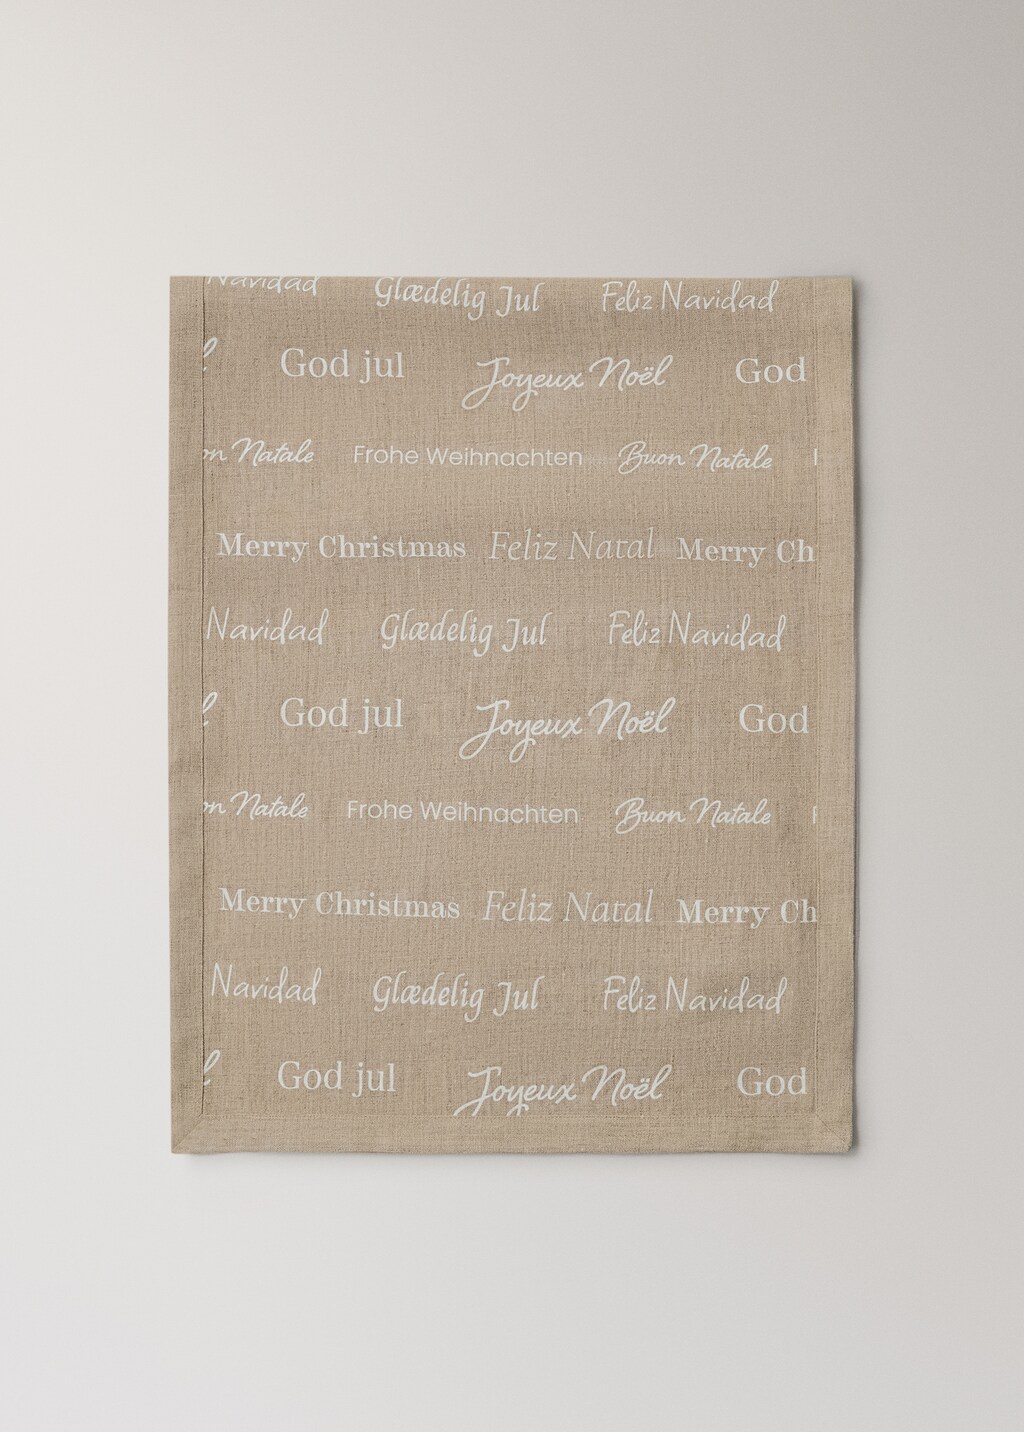 Navidad Glædelig Jul Feliz Navidad
God jul Joyeux Noël God
on Natale Frohe Weihnachten Buon Natale
Merry Christmas Feliz Natal Merry Ch
Navidad Glædelig Jul Feliz Navidad
l God jul Joyeux Noël God
on Natale Frohe Weihnachten Buon Natale
Merry Christmas Feliz Natal Merry Ch
Navidad Glædelig Jul Feliz Navidad
l God jul Joyeux Noël God